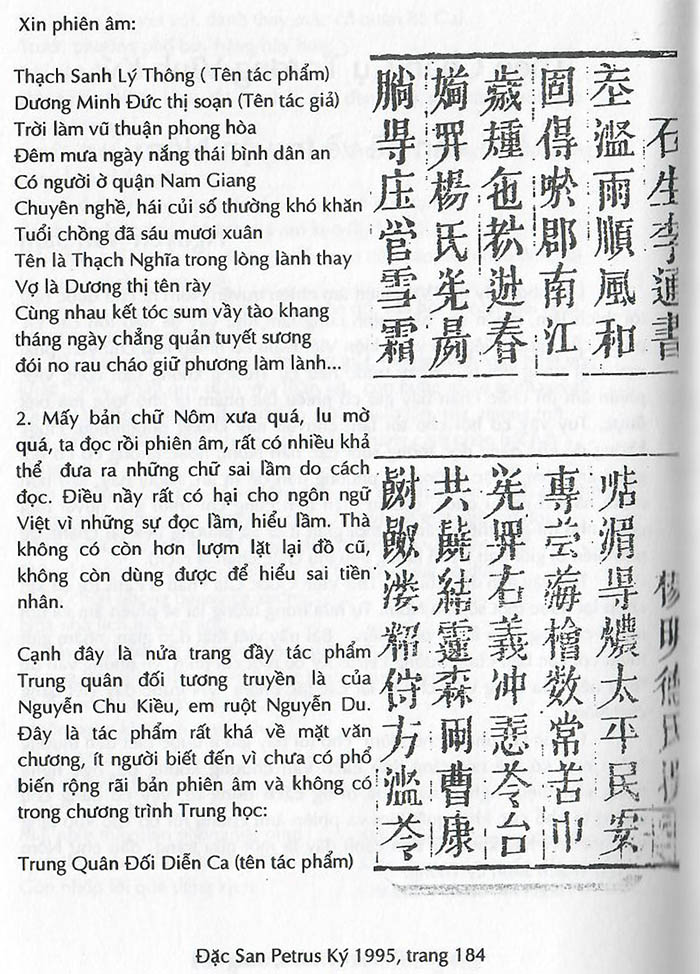 Xin phiên âm:
Thạch Sanh Lý Thông ( Tên tác phẩm)
Dương Minh Đức thị soạn (Tên tác giả)
Trời làm vũ thuận phong hòa
Đêm mưa ngày nắng thái bình dân an
Có người ở quận Nam Giang
Chuyên nghề, hái củi số thường khó khăn
Tuổi chồng đã sáu mươi xuân
Tên là Thạch Nghĩa trong lòng lành thay
Vợ là Dương thị tên rày
Cùng nhau kết tóc sum vầy tào khang
tháng ngày chẳng quản tuyết sương
đói no rau cháo giữ phương làm lành...
2. Mấy bản chữ Nôm xưa quá, lu mờ
quá, ta đọc rồi phiên âm, rất có nhiều khả
thể đưa ra những chữ sai lầm do cách
đọc. Điều nầy rất có hại cho ngôn ngữ
Việt vì những sự đọc lầm, hiểu lầm. Thà
không có còn hơn lượm lặt lại đồ cũ,
không còn dùng được để hiểu sai tiền
nhân.
Cạnh đây là nửa trang đầy tác phẩm
Trung quân đối tương truyền là của
Nguyễn Chu Kiều, em ruột Nguyễn Du.
Đây là tác phẩm rất khá về mặt văn
chương, ít người biết đến vì chưa có phổ
biến rộng rãi bản phiên âm và không có
trong chương trình Trung học:
Trung Quân Đối Diễn Ca (tên tác phẩm)
石生李通書
濫雨順風和
固得 郡南江
歲 春
羿楊氏先
㝵庄 雪霜
楊明德氏
湄㝵 太平民安
專芸海檜数常苦巾
羿右義冲 苓台
共饒結 森 曹康
蔞 侍方濫苓
Đặc San Petrus Ký 1995, trang 184